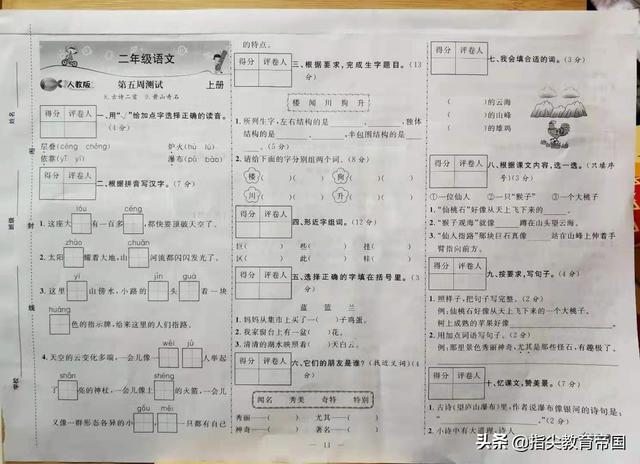 姓名
班级
学校
密
封
线
二年级语文
人教版 第五周测试 上册
8.古诗二首 9.黄山奇石
得分 评卷人
一、用“√”给加点字选择正确的读音。
(4分)
层叠(céng chéng) 炉火(hú lú)
依靠(yī yì) 瀑布(pù bào)
得分 评卷人
二、根据拼音写汉字。(7分)
lóu céng
1.这座大 有一百多 ,都快要顶破天空了。
zhào chuān
2.太阳 耀着大地,山 河流都闪闪发光了。
yī jīn guà
3.这里 山傍水,小路的 头 着一块
huáng
色的指示牌,给来这里的人们指路。
wèi jù
4.天空的云变化多端,一会儿像一 人举起
shǎn shēng
了 亮的神杖,一会儿像上 的火箭,一会儿
gǒu měi
又像一群形态各异的小 ,一只都有自己
的特点。
得分 评卷人
三、根据要求,完成生字题目。(13
分)
楼 闻 川 狗 升
1.所列生字,左右结构的是 、 ,独体
结构的是 、 ,半包围结构的是
。(5分)
2.请给下面的字分别组两个词。(8分)
楼( )( ) 狗( )( )
川( )( ) 升( )( )
得分 评卷人
四、形近字组词。(12分)
巨( ) 些( ) 挂( )
区( ) 此( ) 桂( )
得分 评卷人
五、选择正确的字填在括号里。(3
分)
蓝 篮 兰
1.妈妈从集市上买了一( )子鸡蛋。
2.我家窗台上有一盆( )花。
3.清清的湖水映照着( )天白云。
得分 评卷人
六、它们的朋友是谁?(找近义词)(4
分)
闻名 秀美 奇特 特别
秀丽—( ) 尤其—( )
神奇—( ) 著名—( )
— 11 —
得分 评卷人
七、我会填合适的词。(3分)
( )的云海
( )的山峰
( )的雄鸡
得分 评卷人
八、根据课文内容,选一选。(只填序
号)(3分)
①一位仙人 ②一只“猴子” ③一个大桃子
1.“仙桃石”好像从天上飞下来的 。
2.“猴子观海”就像 蹲在山头望云海。
3.“仙人指路”那块巨石真像 站在山峰上伸着手
臂指向前方。
得分 评卷人
九、按要求,写句子。(4分)
1.照样子,把句子写完整。(2分)
例:仙桃石好像从天上飞下来的一个大桃子。
树上成熟的苹果好像 。
2.用加点词语写句子。(2分)
例:那里景色秀丽神奇,尤其是那些怪石,有趣极了。
得分 评卷人
十、忆课文,赞美景。(7分)
1.古诗《望庐山瀑布》里,作者说瀑布像银河的诗句是:
“ , 。”(2分)
2.小诗中有大道理,诗人
头条 @指尖教育帝国